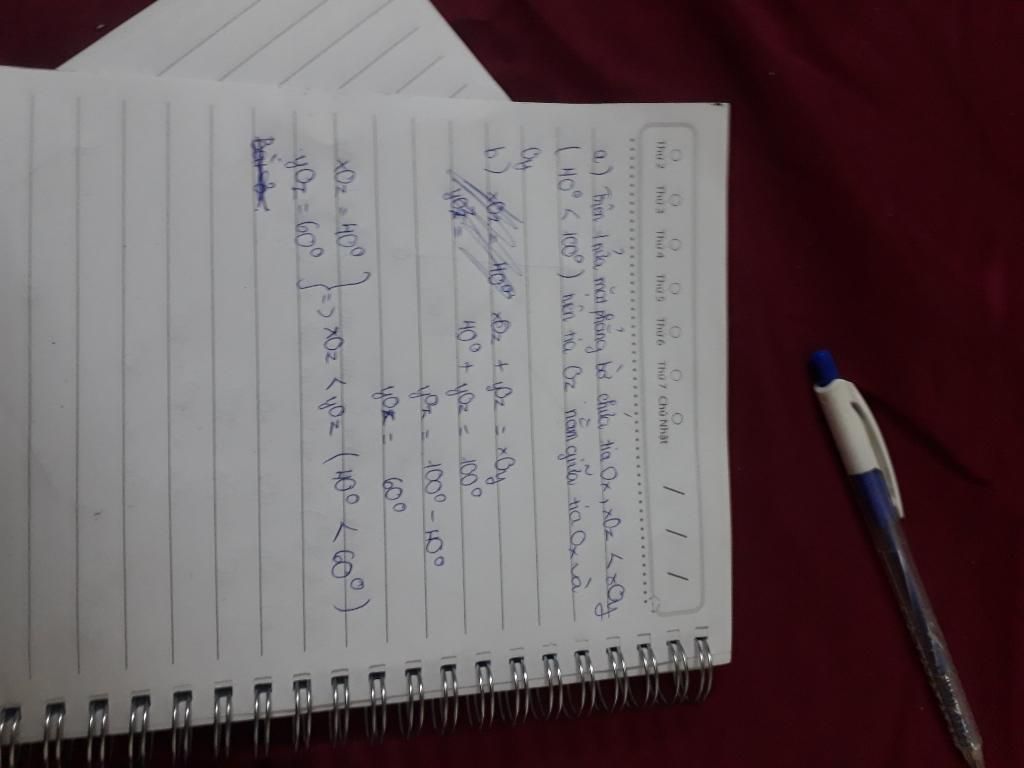 Thứ 2 Thứ 3 Thứ 4 Thứ 5 Thứ 6 Thứ 7 Chủ Nhật / / /
a) Trên 1 nửa mặt phẳng bờ chứa tia Ox, xOz < xOy
( 40° < 100° ) nên tia Oz nằm giữa tia Ox và
Oy
b) xOz = 40° xOz + yOz = xOy
yOz = 40° + yOz = 100°
yOz = 100° - 40°
yOz = 60°
xOz = 40° } => xOz < yOz ( 40° < 60° )
yOz = 60°